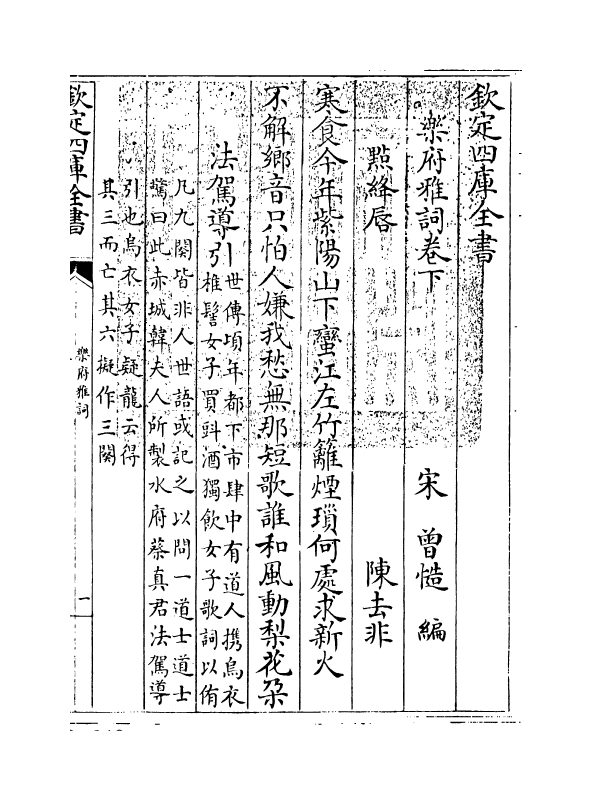 欽定四庫全書
樂府雅詞卷下
宋 曾慥 編
點絳唇
陳去非
寒食今年紫陽山下蠻江左竹籬煙瑣何處求新火
不解鄉音只怕人嫌我愁無那短歌誰和風動梨花朶
法駕導引
世傳頃年都下市肆中有道人攜烏衣
椎髻女子買㪷酒獨飲女子歌詞以侑
凡九闋皆非人世語或記之以問一道士道士
驚曰此赤城韓夫人所製水府蔡真君法駕導
引也烏衣女子疑龍云得
其三而亡其六擬作三闋
欽定四庫全書
樂府雅詞
一